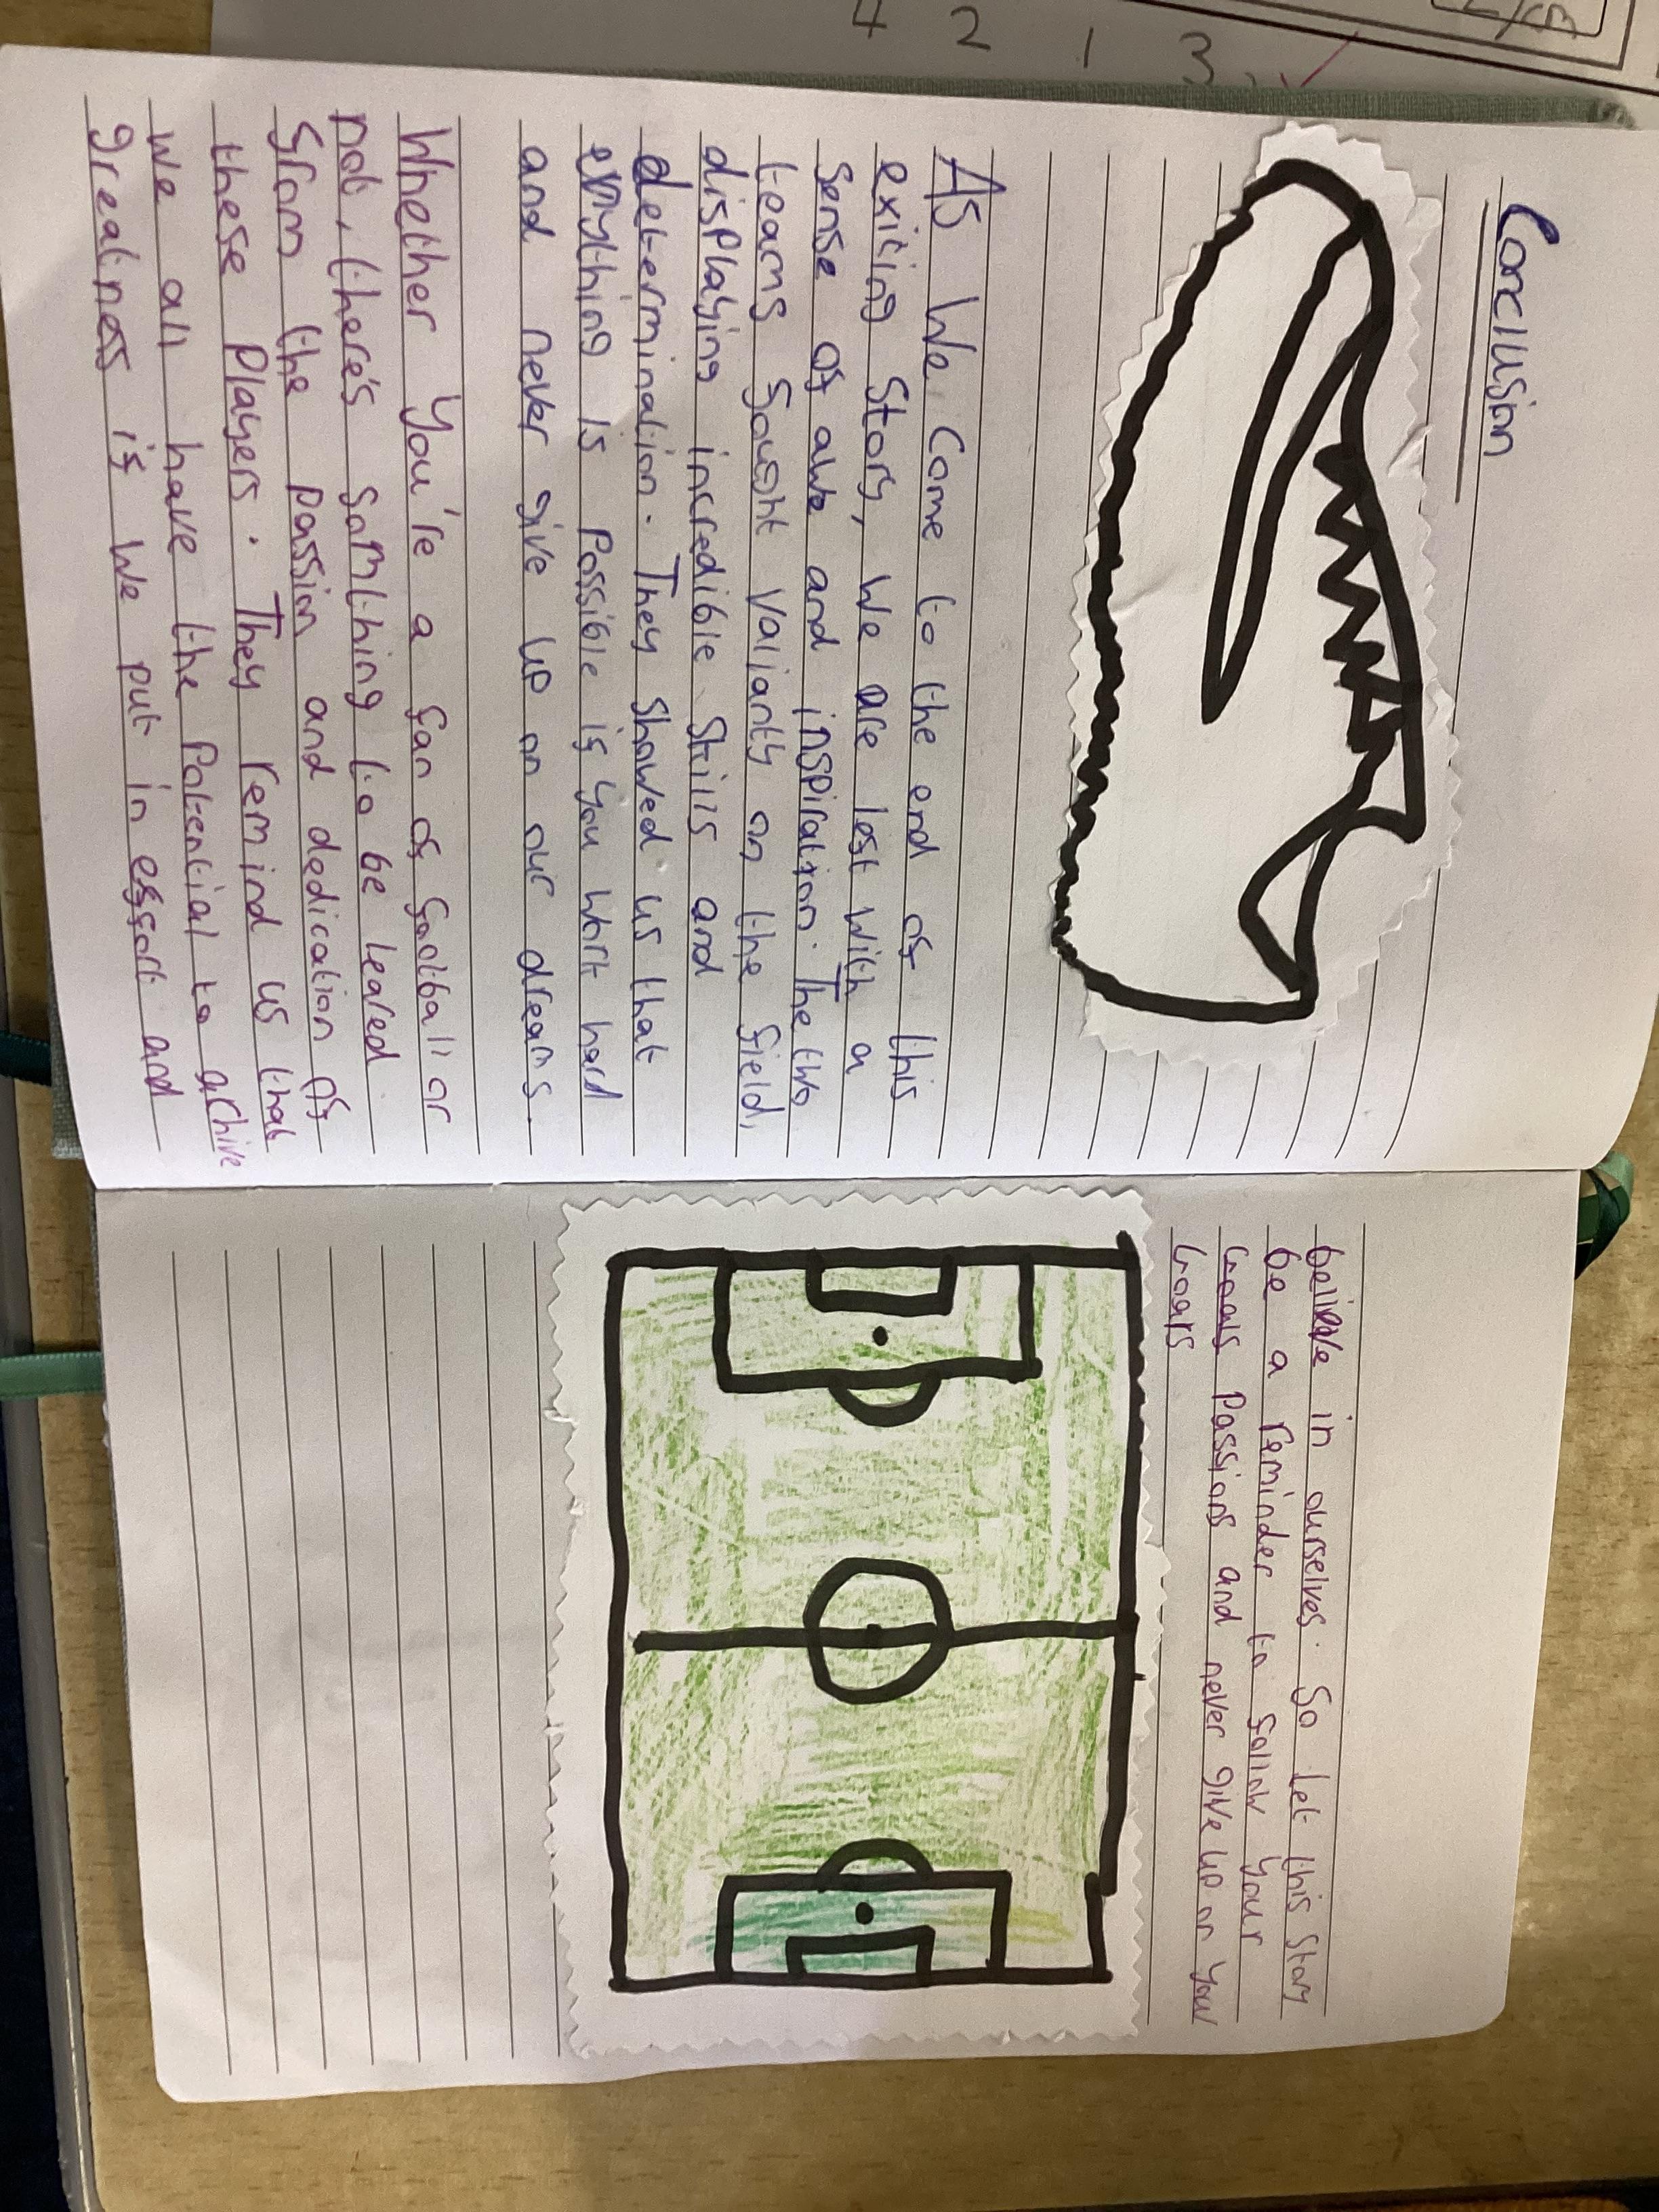 Conclusion
As We Come to the end of this
exiting Story, We are left With a
sense of awe and inspiration. The two
teams fought valiantly on the field,
displaying incredible skills and
determination. They showed us that
enything is possible is you work hard
and never give up on our dreams.
Whether you're a fan of football or
not, there's somthing to be leared
from the passion and dedication of
these players. They remind us that
we all have the potential to archive
greatness is we put in effort and
believe in ourselves. So let this story
be a reminder to follow your
goals passions and never give up on your
goals
4 2 1 3